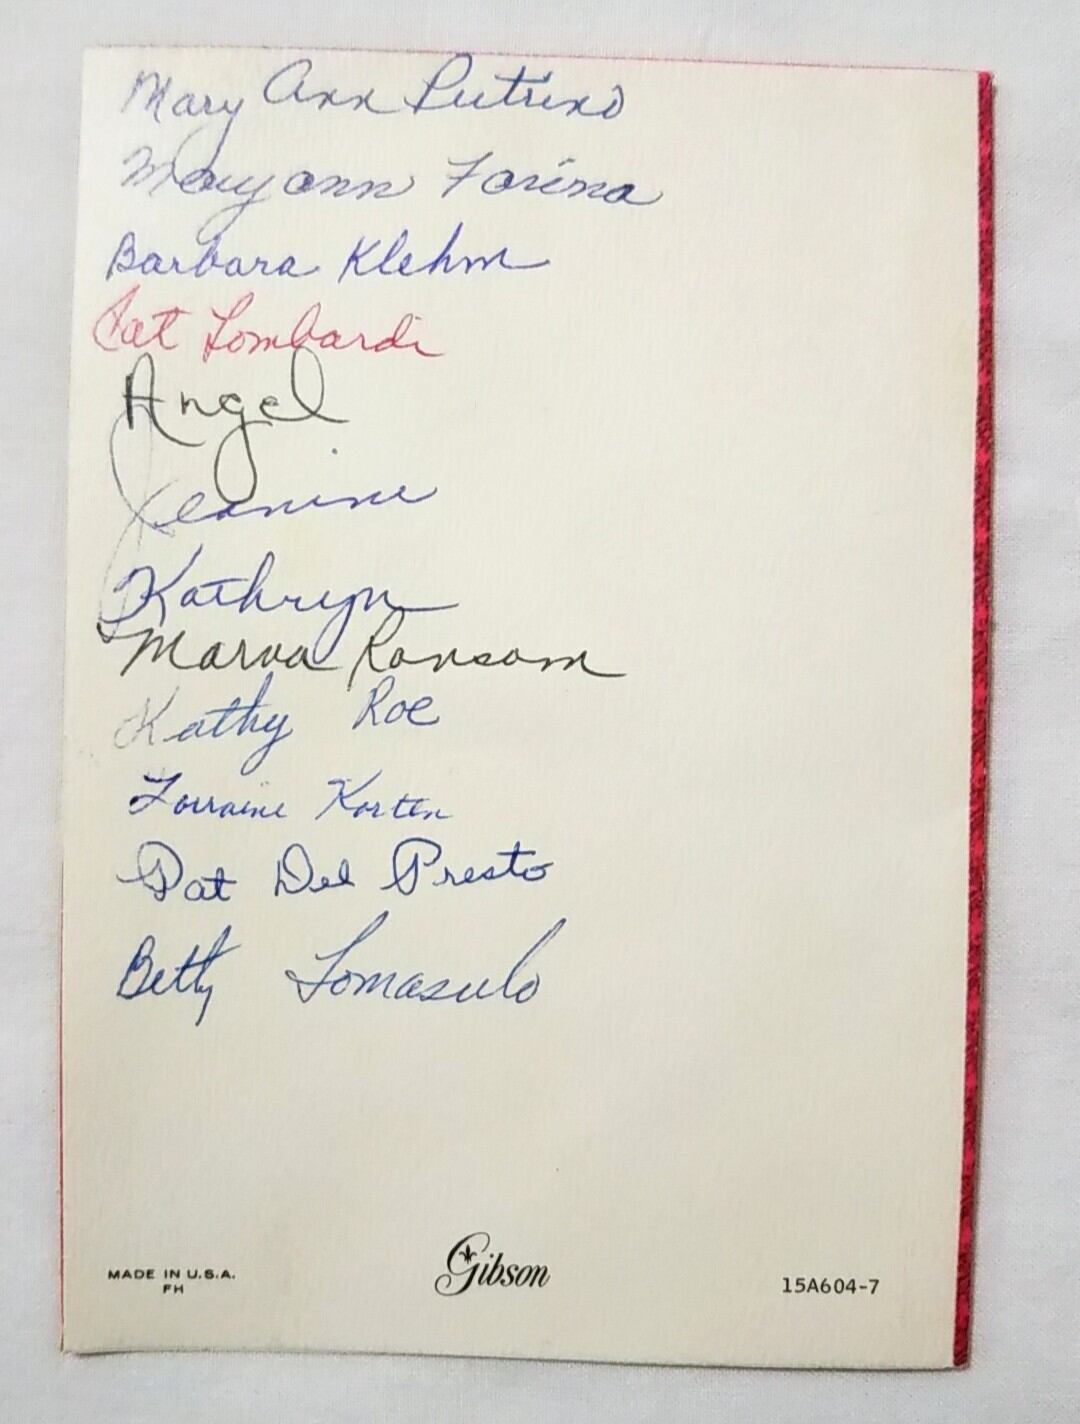 Mary Ann Putrino
Maryann Farina
Barbara Klehm
Pat Lombardi
Angel
Jeanine
Kathryn
Marva Ransom
Kathy Roe
Lorraine Korten
Pat Del Presto
Betty Tomasulo
MADE IN U.S.A.
FH
Gibson
15A604-7